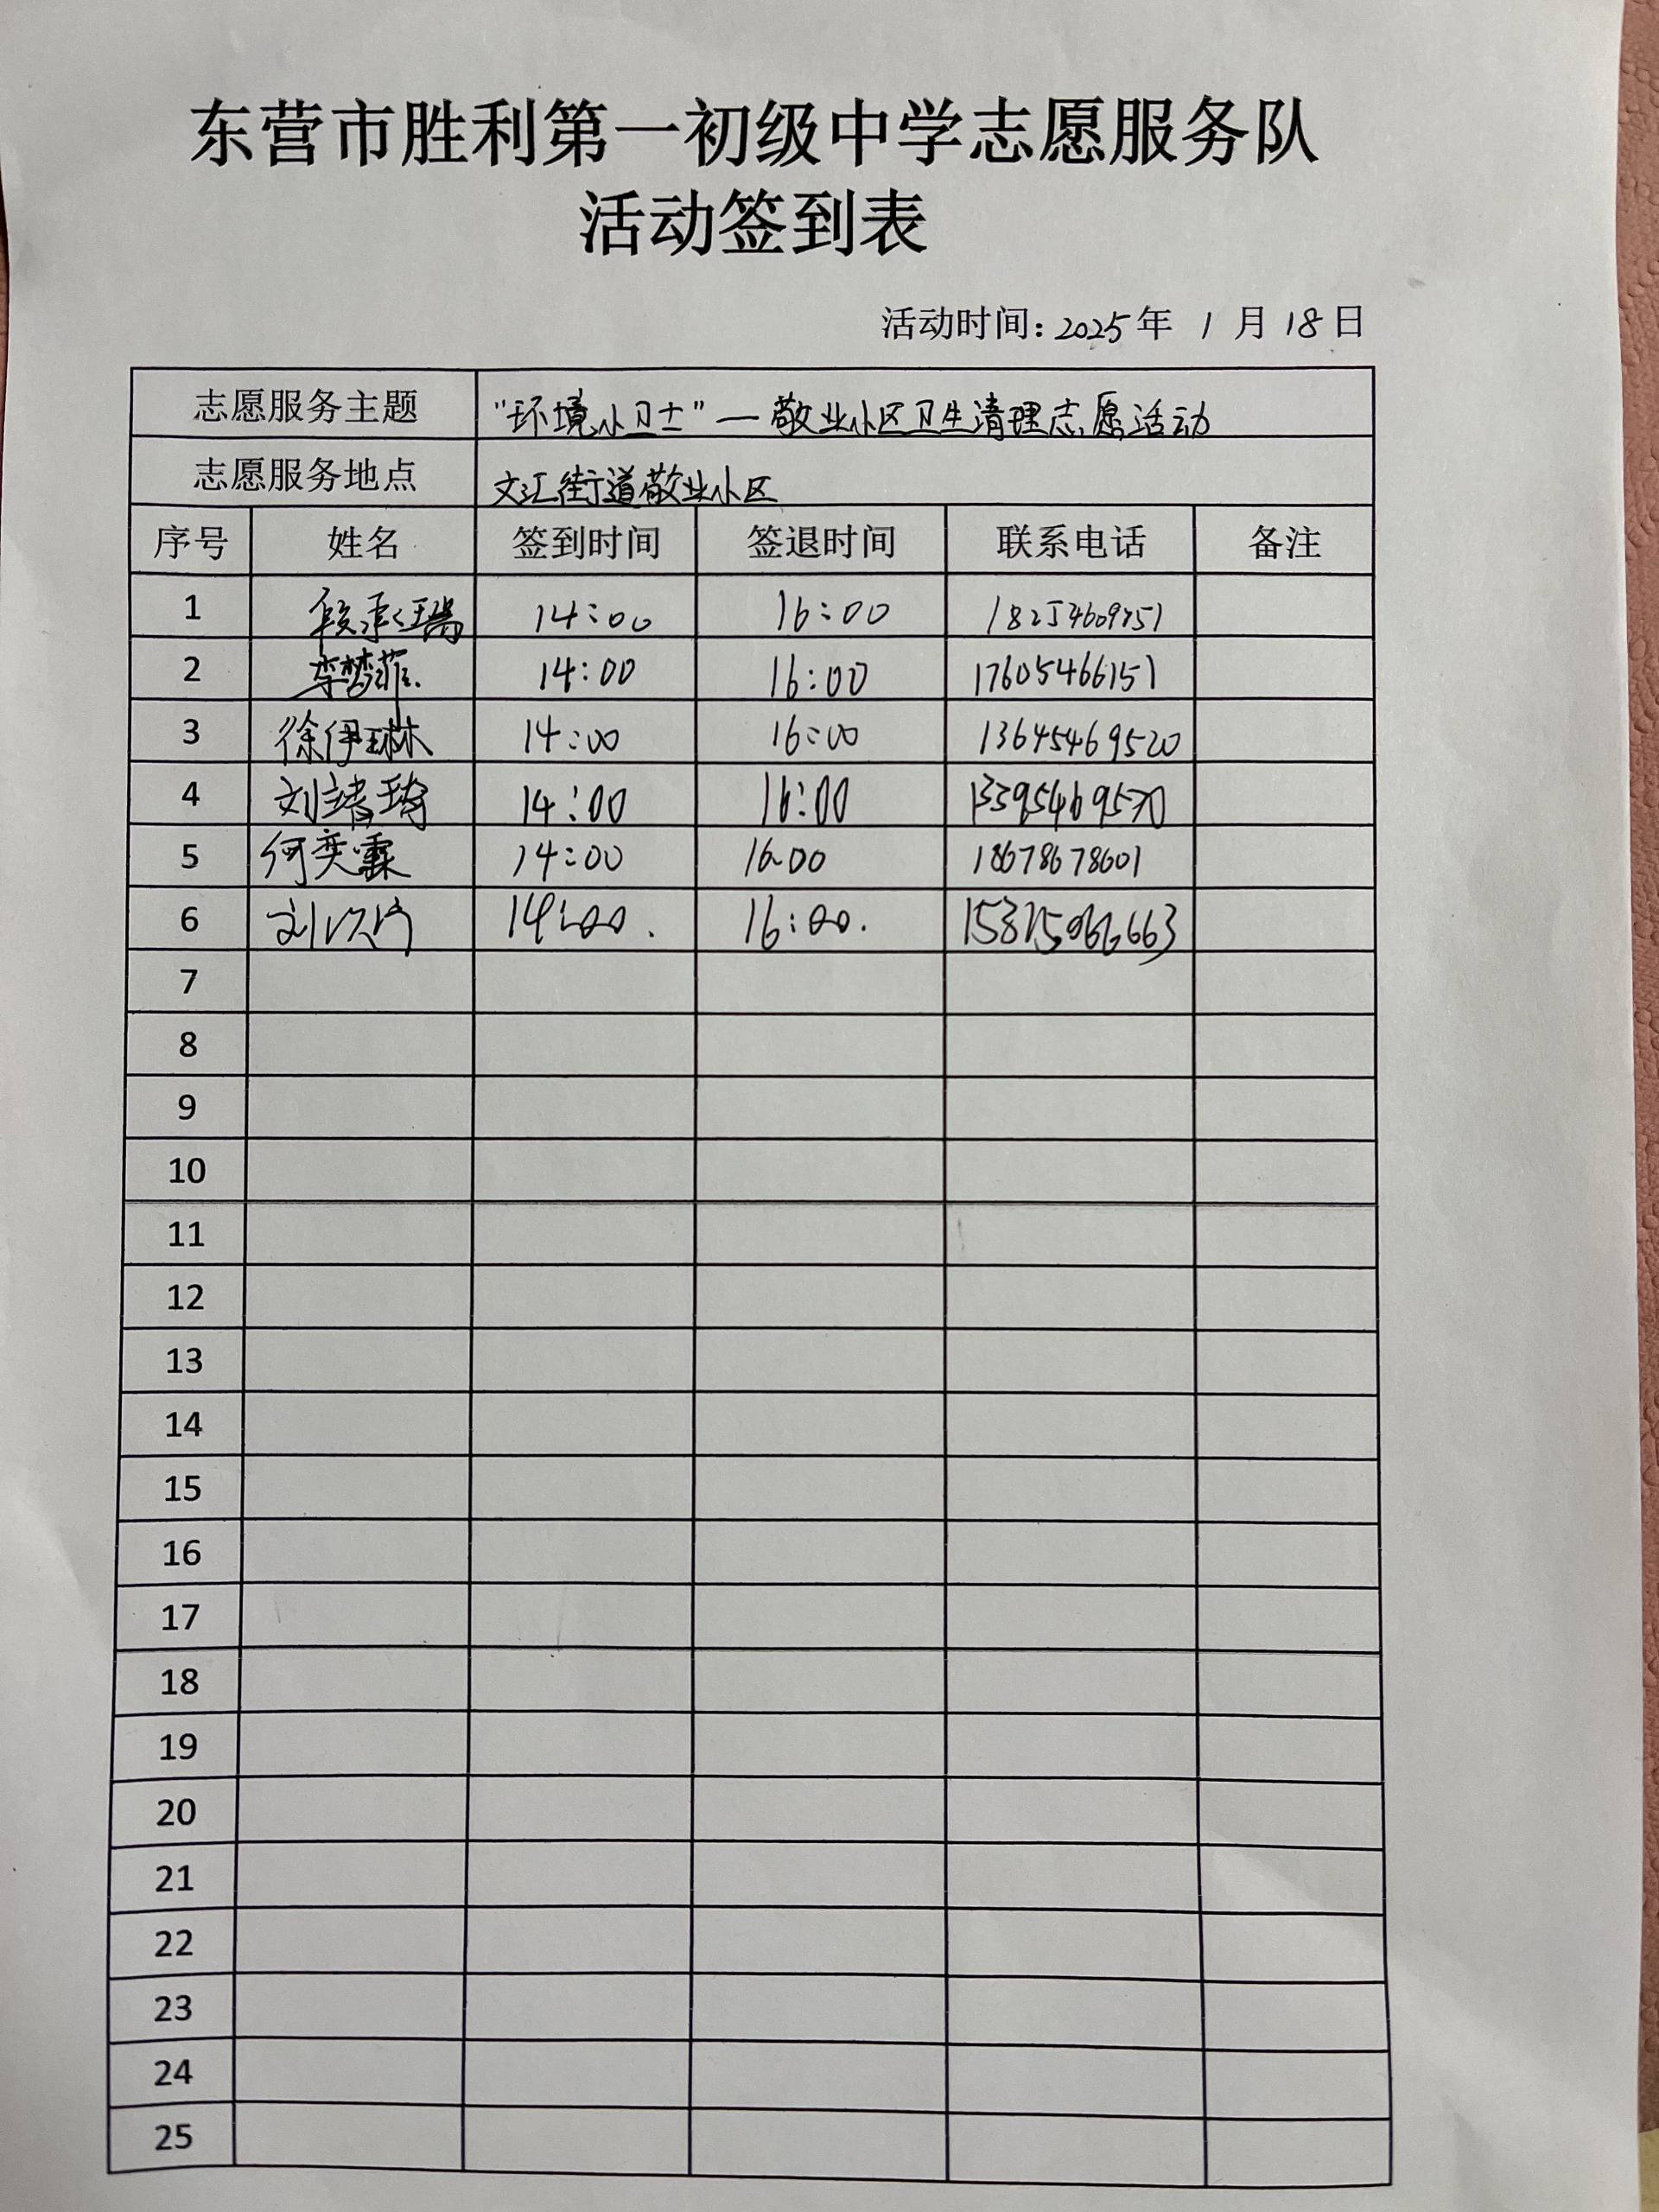 东营市胜利第一初级中学志愿服务队
活动签到表
活动时间：2025年 1 月 18 日
志愿服务主题 "环境小卫士"—敬业小区卫生清理志愿活动
志愿服务地点 文汇街道敬业小区
序号 姓名 签到时间 签退时间 联系电话 备注
1 段承瑞 14:00 16:00
2 李梦菲 14:00 16:00 17605466151
3 徐伊琳 14:00 16:00 13645469520
4 刘靖琦 14:00 16:00
5 何奕霖 14:00 16:00 18678678601
6 刘 14:00. 16:00.
7
8
9
10
11
12
13
14
15
16
17
18
19
20
21
22
23
24
25